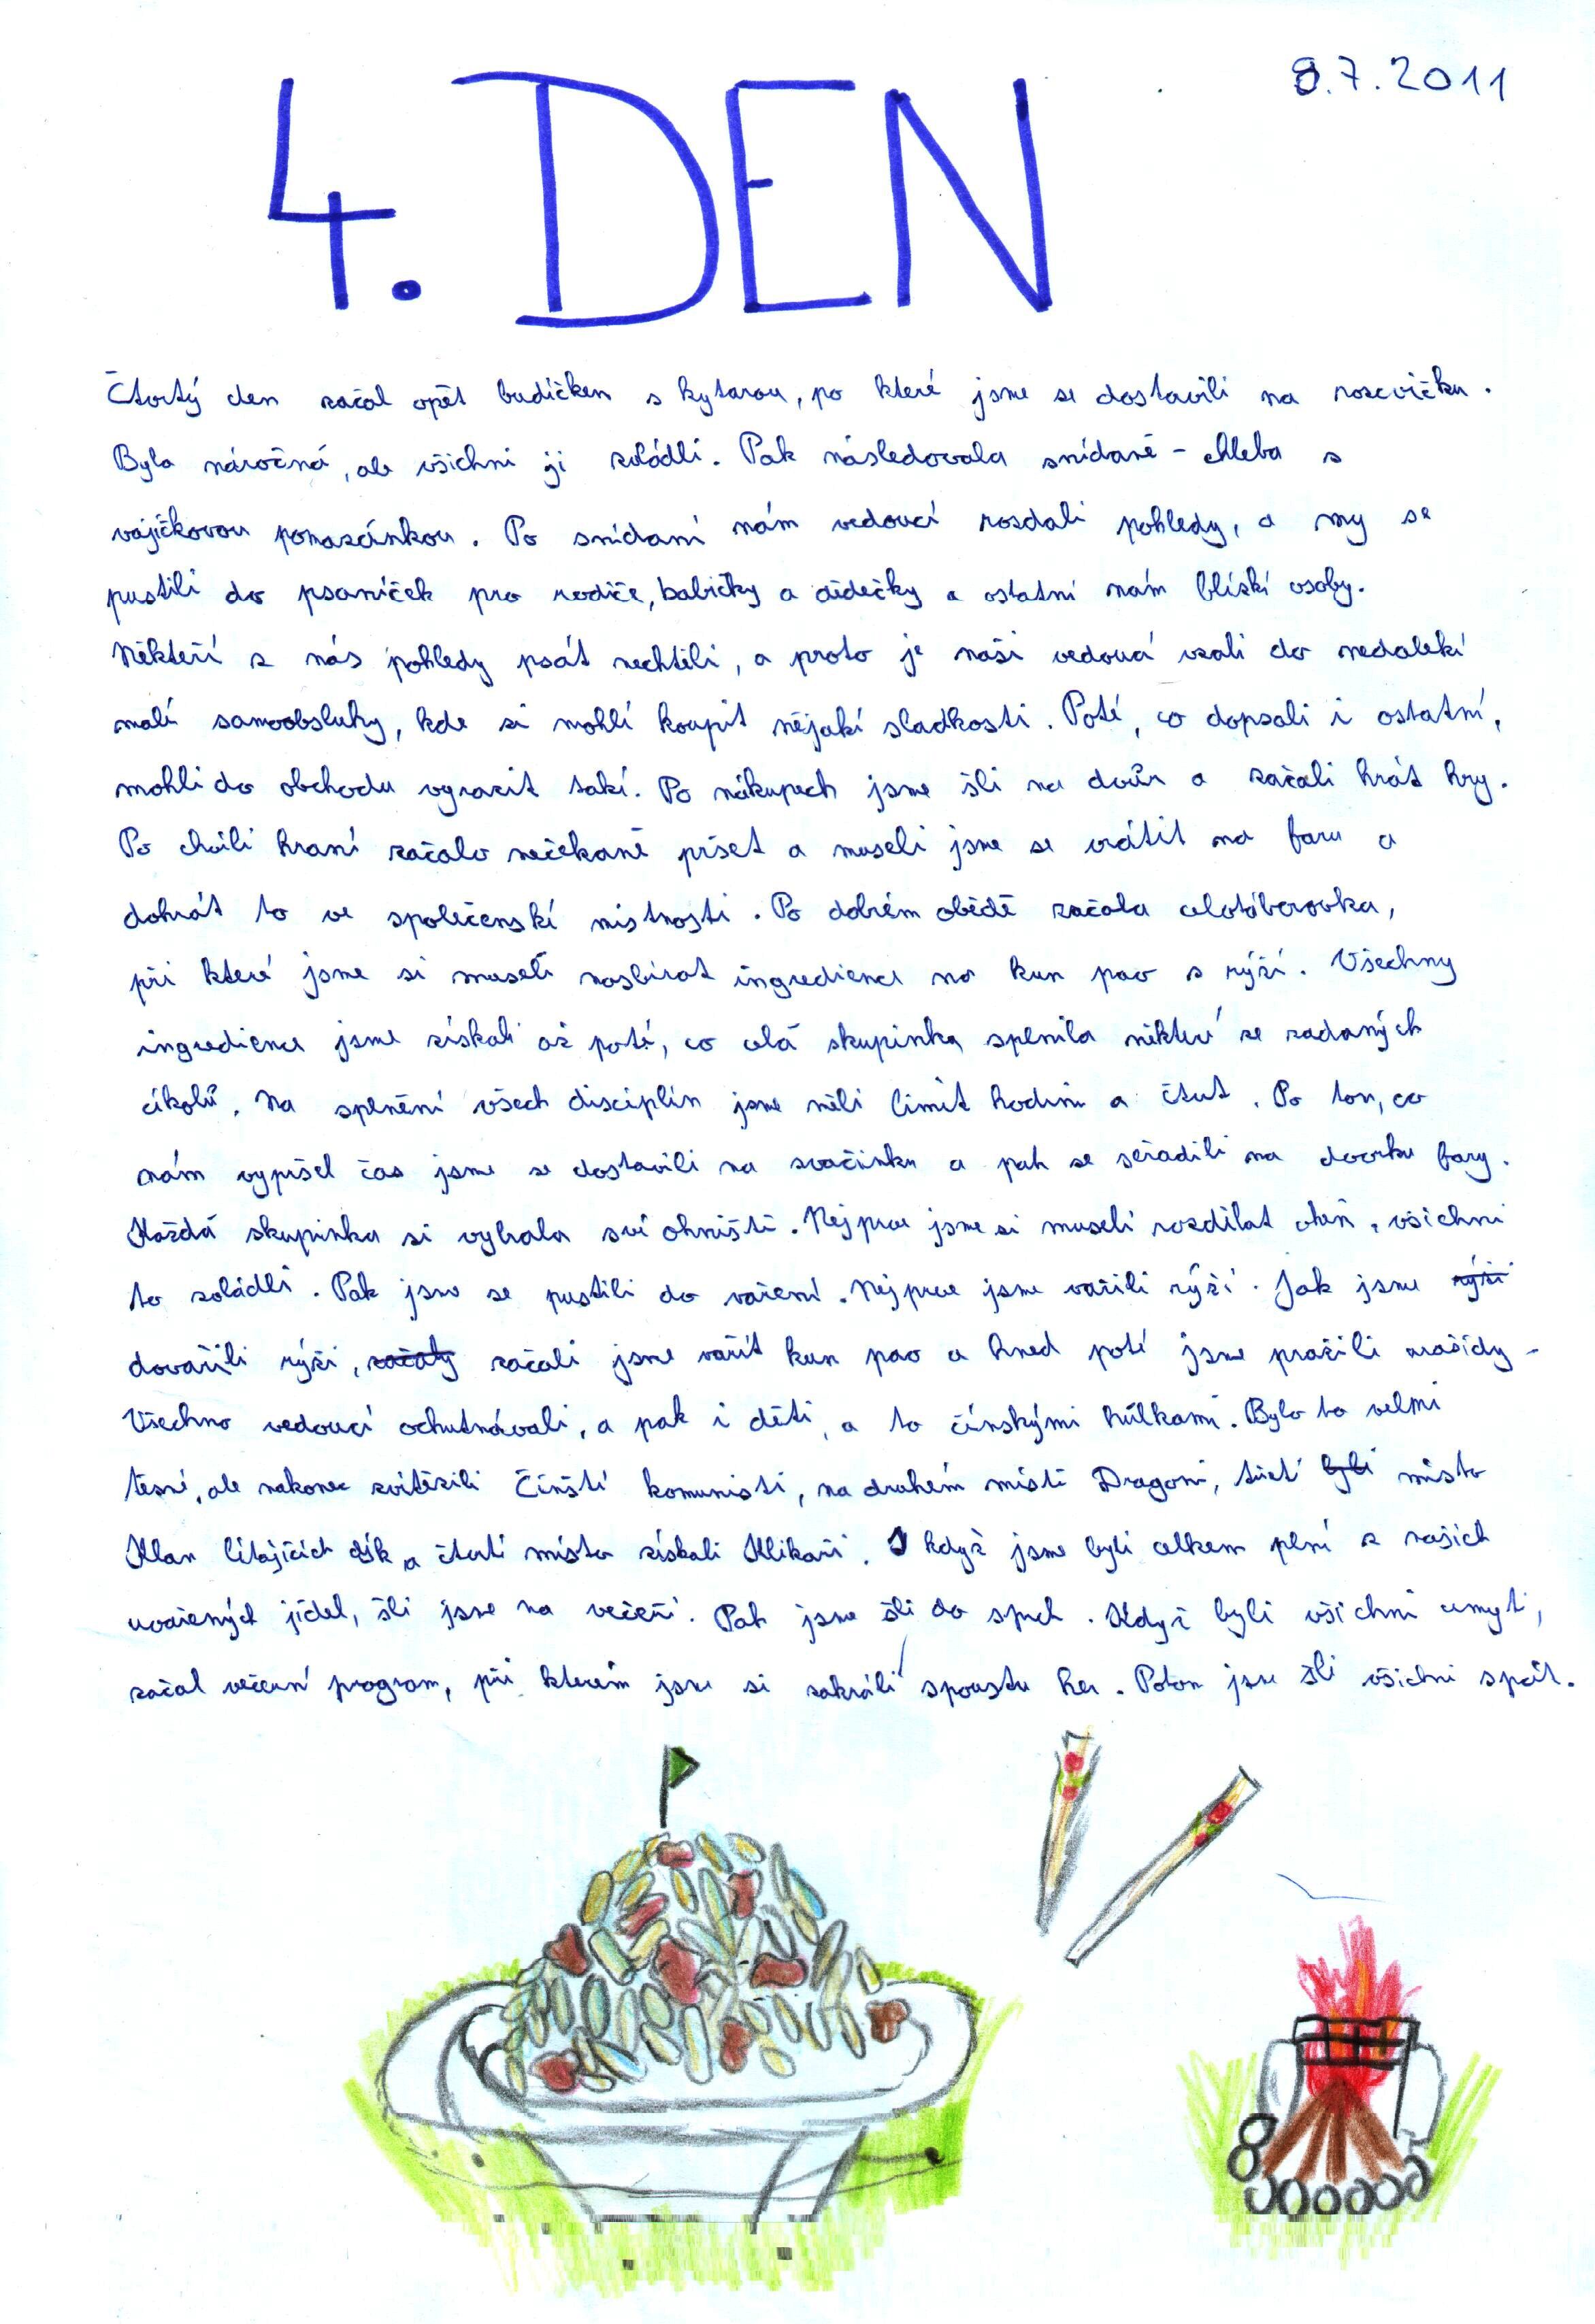 8.7.2011
4. DEN
Čtvrtý den začal opět budíčkem s kytarou, po které jsme se dostavili na rozcvičku.
Byla náročná, ale všichni ji zvládli. Pak následovala snídaně - chleba s
vajíčkovou pomazánkou. Po snídani nám vedoucí rozdali pohledy, a my se
pustili do psaníček pro rodiče, babičky a dědečky a ostatní nám blízkí osoby.
Někteří z nás pohledy psát nechtěli, a proto je naši vedoucí vzali do nedalekí
malí samoobsluhy, kde si mohli koupit nějakí sladkosti. Poté, co dopsali i ostatní,
mohli do obchodu vyrazit takí. Po nákupech jsme šli na dvůr a začali hrát hry.
Po chvíli hraní začalo nečekaně pršet a museli jsme se vrátit na faru a
dohrát to ve společenskí místnosti. Po dobrém obědě začala celotáborovka,
při které jsme si museli nasbírat ingredience na kun pao s rýží. Všechny
ingredience jsme získali až poté, co celá skupinka splnila některé ze zadaných
úkolů. Na splnění všech disciplín jsme měli limit hodinu a čtvrt. Po tom, co
nám vypršel čas jsme se dostavili na svačinku a pak se seřadili na dvorku fary.
Každá skupinka si vybrala své ohniště. Nejprve jsme si museli rozdělat oheň, všichni
to zvládli. Pak jsme se pustili do vaření. Nejprve jsme vařili rýži. Jak jsme rýži
dovařili rýži, začaly začali jsme vařit kun pao a hned poté jsme pražili arašídy -
Všechno vedoucí ochutnávali, a pak i děti, a to čínskými hůlkami. Bylo to velmi
těsné, ale nakonec zvítězili Čínští komunisti, na druhém místě Dragoni, třetí byli místo
Klan lítajících dýk a čtvrté místo získali Klikaři. I když jsme byli celkem plní z našich
uvařených jídel, šli jsme na večeři. Pak jsme šli do sprch. Když byli všichni umytí,
začal večerní program, při kterém jsme si zahráli spoustu her. Potom jsme šli všichni spát.